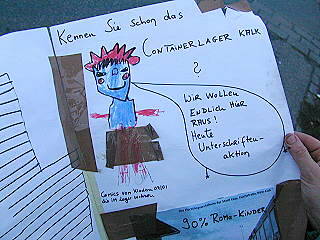 Kennen Sie schon das
CONTAINERLAGER KALK
?
WIR WOLLEN
ENDLICH HIER
RAUS!
Heute
Unterschriften-
aktion
Comics von Kindern
die im Lager wohnen
90% ROMA-KINDER